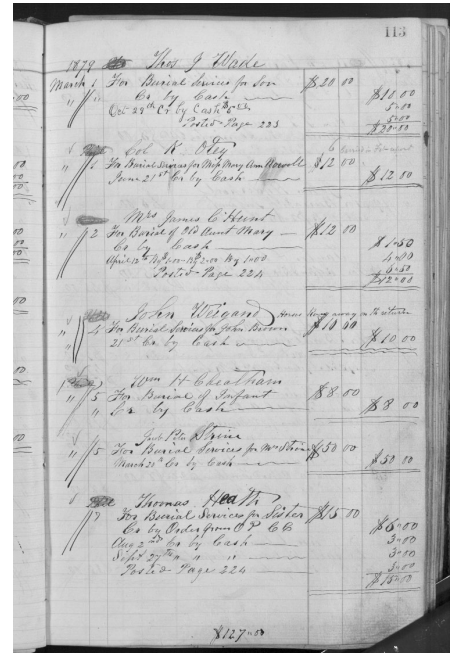 113
1879 Thos J Wade
March 1 For Burial Services for Son $20 00
" " Cr by Cash $10 00
Oct 29th Cr by Cash $5 5 00
5 00
Posted Page 223 $20 00
Col R Otey
" 1 For Burial Services for Miss Mary Ann $12 00
June 21st Cr by Cash $12 00
Mrs James C Hunt
" 2 For Burial of Old Aunt Mary $12 00
Cr by Cash $1 50
April 12th 4 00
6 50
Posted Page 224 $12 00
John Weigand Horse Ran away on the return
" 4 For Burial Services for John Brown $10 00
21st Cr by Cash $10 00
Wm H Cheatham
" 5 For Burial of Infant $8 00
" Cr by Cash $8 00
Peter Strine
" 5 For Burial Services for Mrs Strine $50 00
March 21st Cr by Cash $50 00
Thomas Heath
" 7 For Burial Services for Sister $15 00
Cr by Order from $6 00
Aug 2nd Cr by Cash 3 00
Sept 27th " " " 3 00
Posted Page 224 3 00
$15 00
$127 00